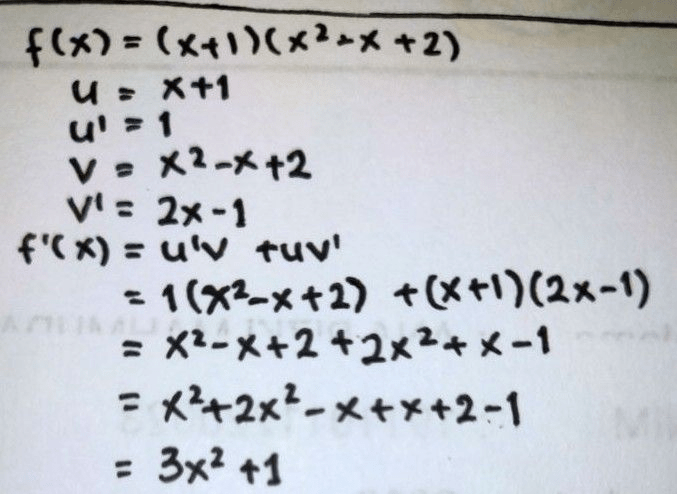 f(x) = (x+1)(x²-x+2)
u = x+1
u' = 1
v = x²-x+2
v' = 2x-1
f'(x) = u'v +uv'
= 1(x²-x+2) +(x+1)(2x-1)
= x²-x+2+2x²+x-1
= x²+2x²-x+x+2-1
= 3x²+1